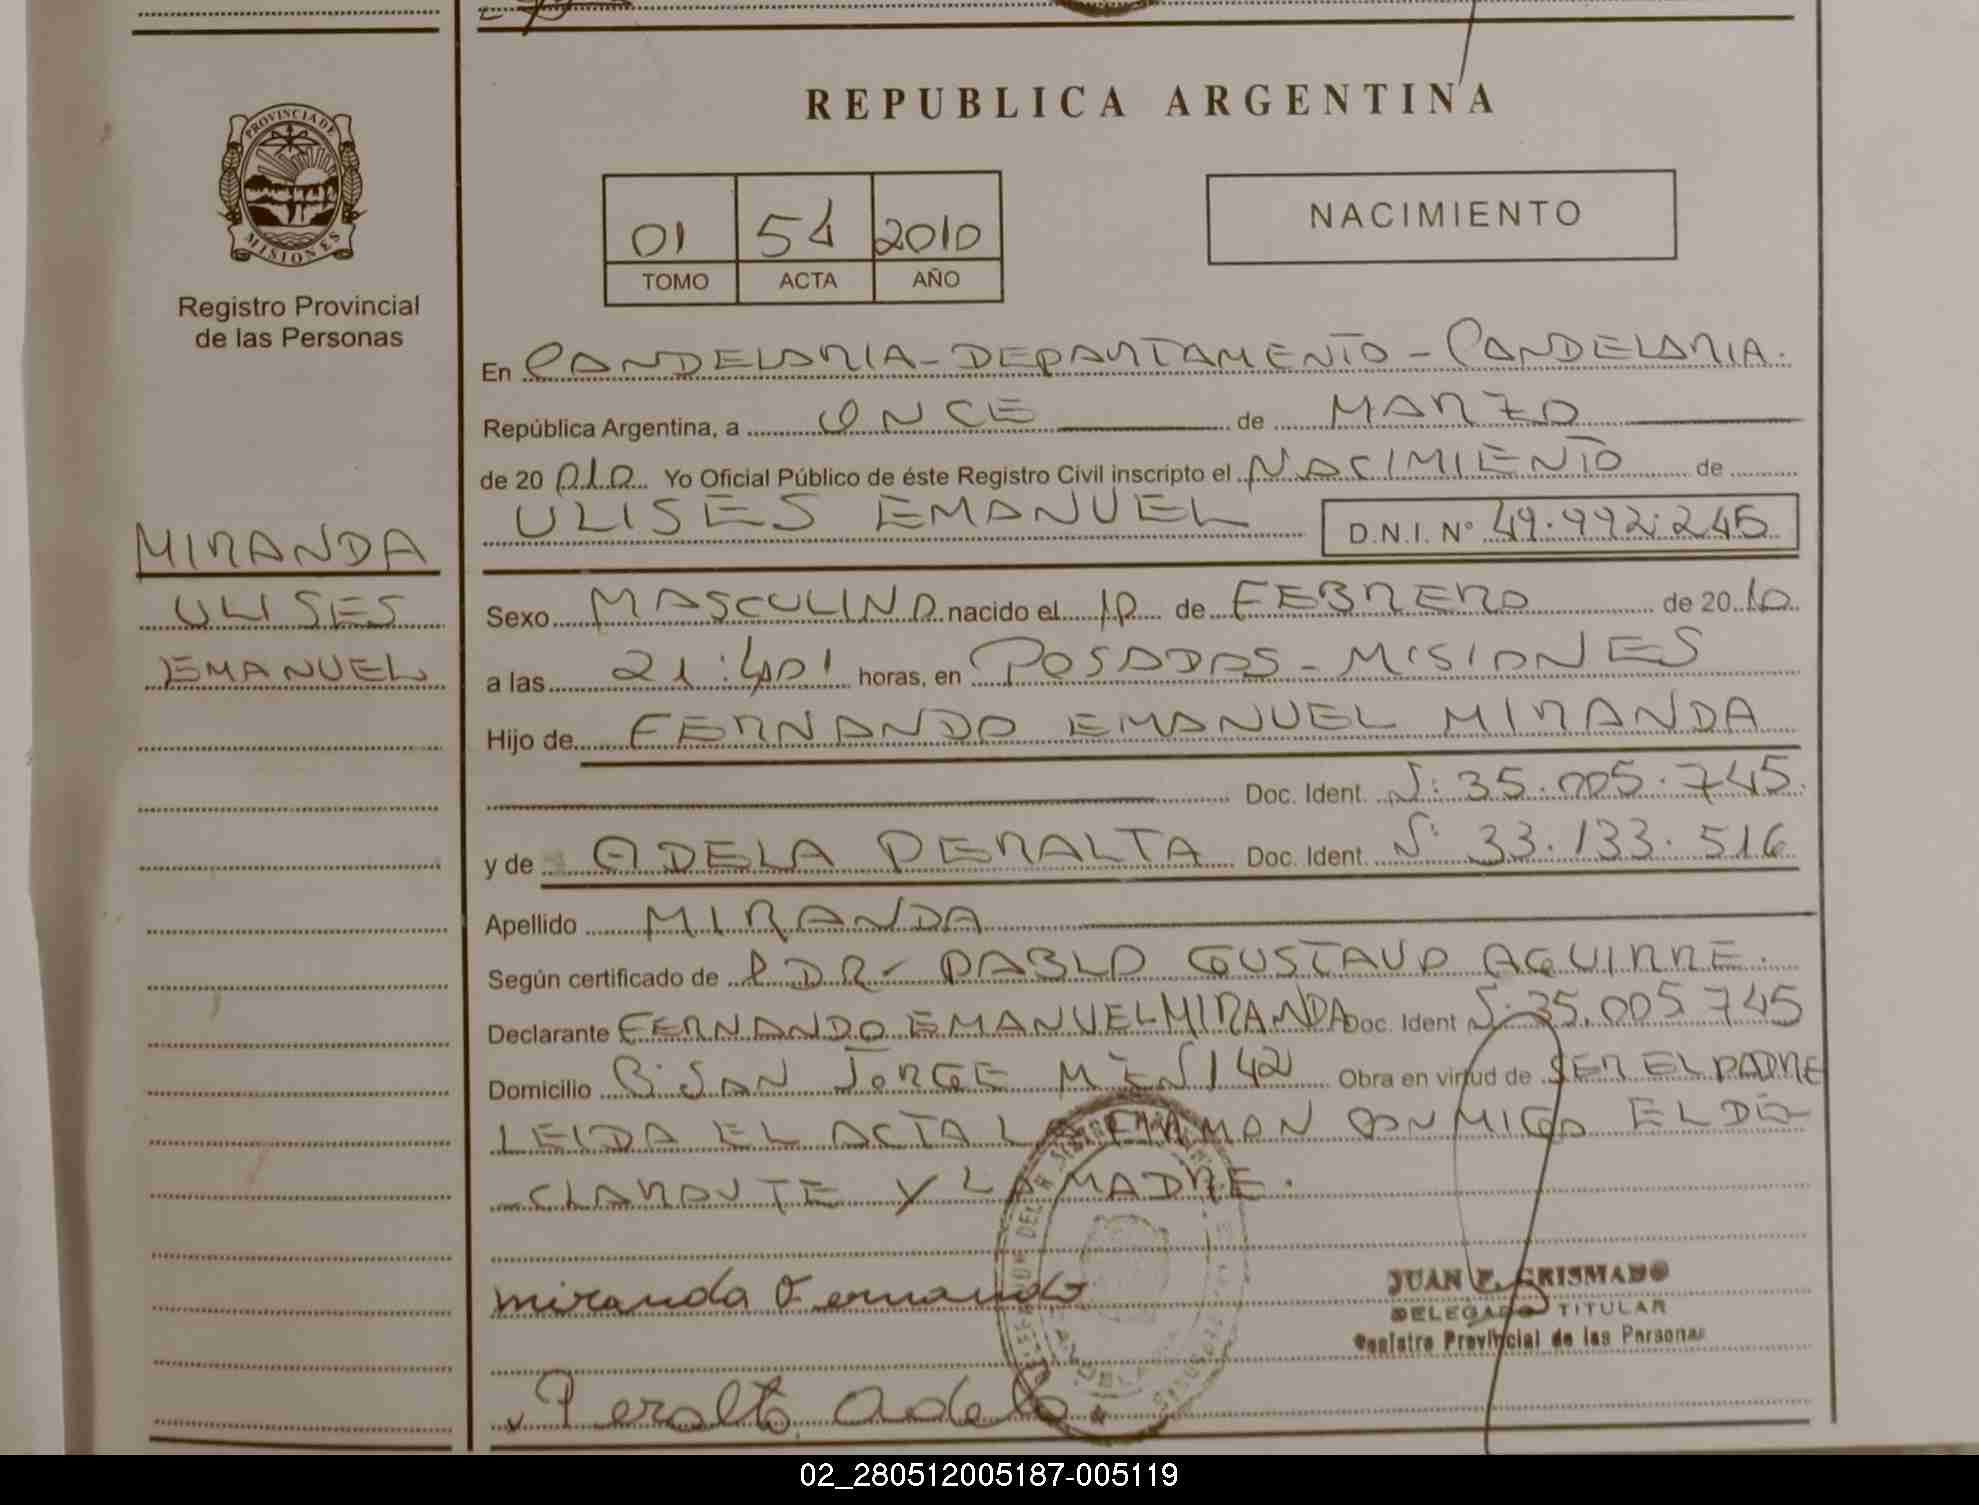 REPUBLICA ARGENTINA
PROVINCIA DE
MISIONES
Registro Provincial
de las Personas
01 54 2010
TOMO ACTA AÑO
NACIMIENTO
En CANDELARIA - DEPARTAMENTO - CANDELARIA.
República Argentina, a ONCE de MARZO
de 20 010 Yo Oficial Público de éste Registro Civil inscripto el NACIMIENTO de
ULISES EMANUEL D.N.I. N° 49.992.245
MIRANDA
ULISES
EMANUEL
Sexo MASCULINO nacido el 10 de FEBRERO de 20 10
a las 21:40 horas, en POSADAS - MISIONES
Hijo de FERNANDO EMANUEL MIRANDA
Doc. Ident. N: 35.005.745.
y de ADELA PERALTA Doc. Ident. N: 33.133.516
Apellido MIRANDA
Según certificado de DR PABLO GUSTAVO AGUIRRE.
Declarante FERNANDO EMANUEL MIRANDA Doc. Ident N: 35.005.745
Domicilio B: SAN JORGE 142 Obra en virtud de SER EL PADRE
LEIDA EL ACTA LA FIRMAN CONMIGO EL DE-
-CLARANTE Y LA MADRE.
Miranda Fernando
JUAN F. CRISMADO
DELEGADO TITULAR
Registro Provincial de las Personas
Peralta Adela
02_280512005187-005119